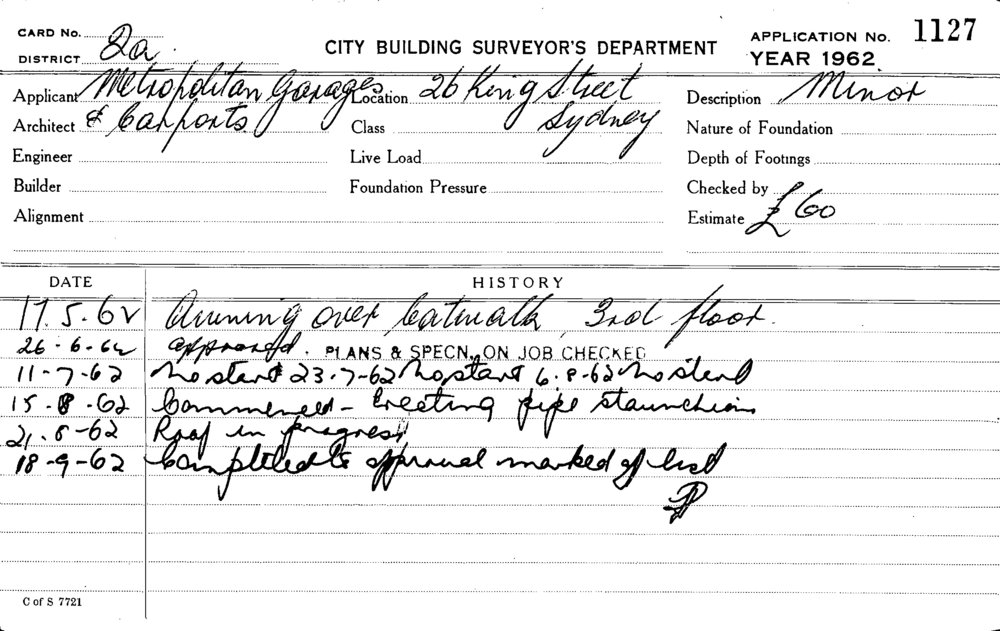 CARD No.
DISTRICT 2a.
CITY BUILDING SURVEYOR'S DEPARTMENT
APPLICATION No. 1127
YEAR 1962.
Applicant Metropolitan Garages
Location 26 King Street
Description Minor
Architect & Carports
Class Sydney
Nature of Foundation
Engineer
Live Load
Depth of Footings
Builder
Foundation Pressure
Checked by
Alignment
Estimate £60
DATE HISTORY
17.5.62 Awning over Catwalk, 3rd floor.
26-6-62 approved. PLANS & SPECN. ON JOB CHECKED
11-7-62 No start 23-7-62 No start 6-8-62 No start
15-8-62 Commenced - Erecting pipe staunchions
21.8-62 Roof in progress
18-9-62 Completed to approval marked of list
C of S 7721